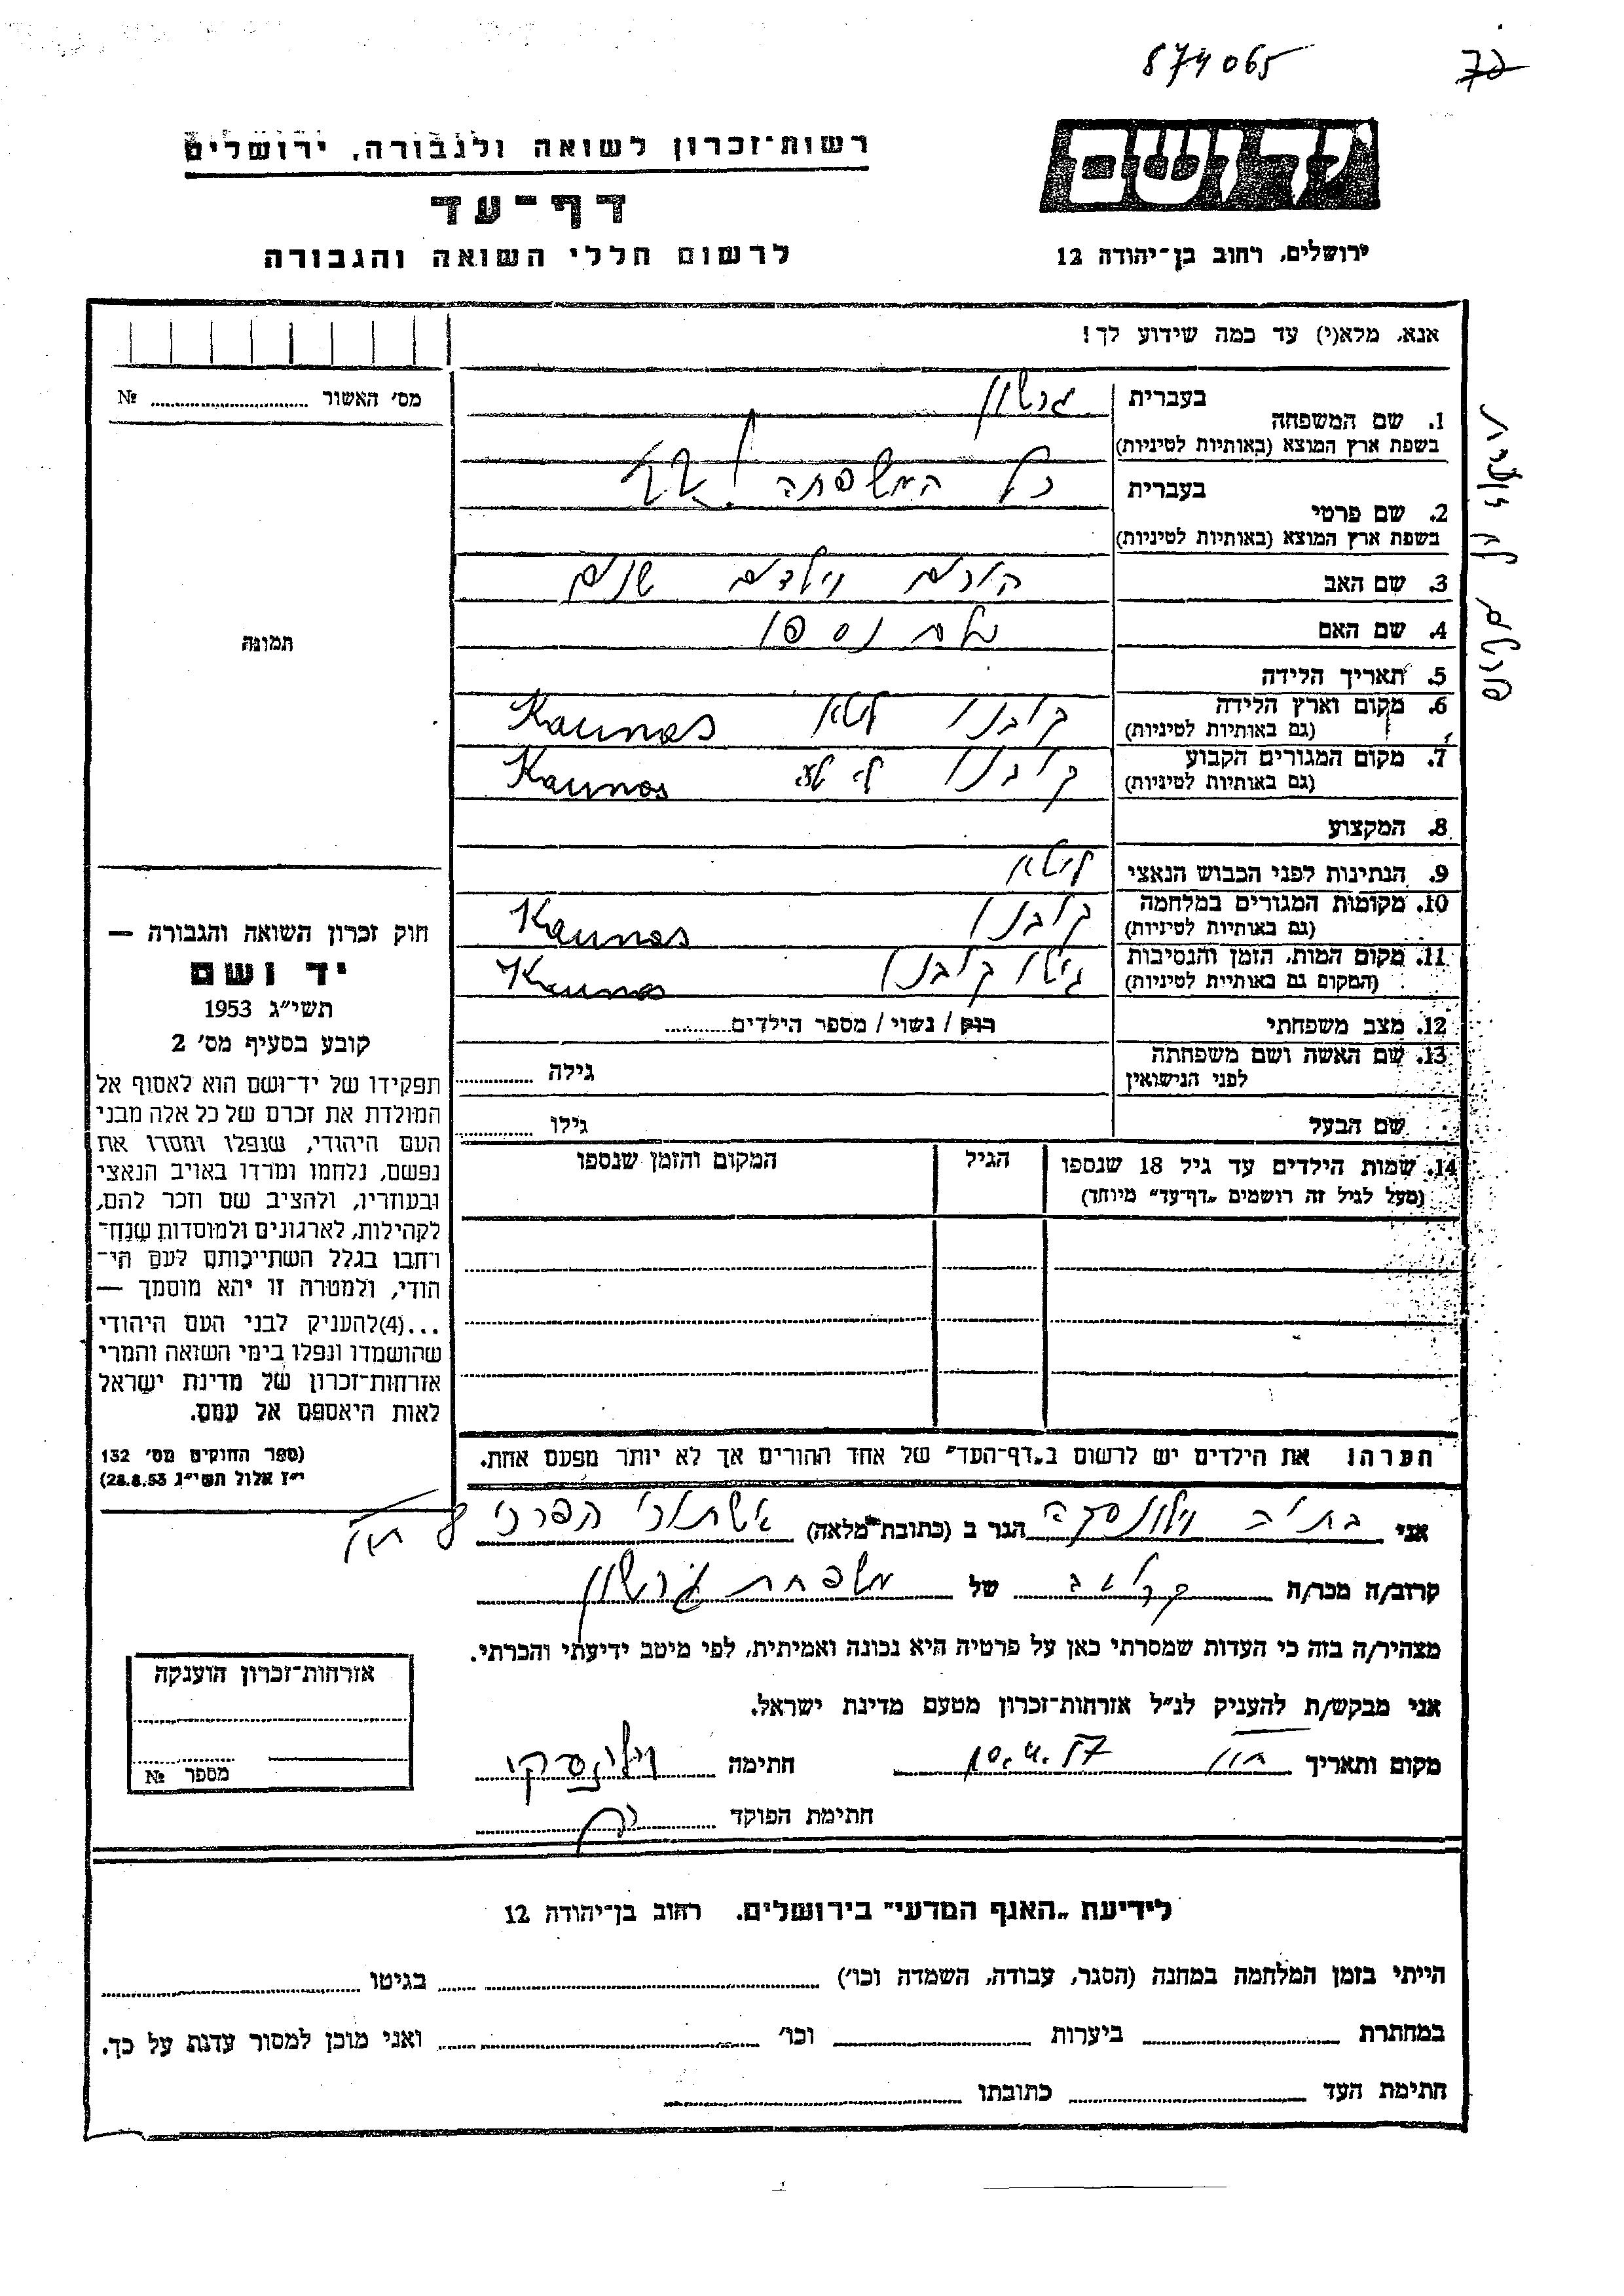 874065
72
רשות־זכרון לשואה ולגבורה, ירושלים
יד ושם
דף־עד
לרשום חללי השואה והגבורה
ירושלים, רחוב בן־יהודה 12
אנא, מלא(י) עד כמה שידוע לך!
מס׳ האשור № 
1. שם המשפחה
בעברית גרשון
בשפת ארץ המוצא (באותיות לטיניות)
2. שם פרטי
בעברית כל המשפחה
בשפת ארץ המוצא (באותיות לטיניות)
3. שם האב הורים וילדים
4. שם האם כלם נספו
תמונה
5. תאריך הלידה
6. מקום וארץ הלידה קובנו ליטא Kaunas
(גם באותיות לטיניות)
7. מקום המגורים הקבוע קובנו ליטא Kaunas
(גם באותיות לטיניות)
8. המקצוע
9. הנתינות לפני הכבוש הנאצי ליטא
10. מקומות המגורים במלחמה קובנו Kaunas
(גם באותיות לטיניות)
11. מקום המות, הזמן והנסיבות גיטו קובנו Kaunas
(המקום גם באותיות לטיניות)
12. מצב משפחתי רוק / נשוי / מספר הילדים
13. שם האשה ושם משפחתה
לפני הנישואין גילה
שם הבעל גילו
14. שמות הילדים עד גיל 18 שנספו הגיל המקום והזמן שנספו
(מעל לגיל זה רושמים „דף־עד״ מיוחד)
חוק זכרון השואה והגבורה —
יד ושם
תשי״ג 1953
קובע בסעיף מס׳ 2
תפקידו של יד־ושם הוא לאסוף אל
המולדת את זכרם של כל אלה מבני
העם היהודי, שנפלו ומסרו את
נפשם, נלחמו ומרדו באויב הנאצי
ובעוזריו, ולהציב שם וזכר להם,
לקהילות, לארגונים ולמוסדות שנח־
רחבו בגלל השתייכותם לעם הי־
הודי, ולמטרה זו יהא מוסמך —
...(4)להעניק לבני העם היהודי
שהושמדו ונפלו בימי השואה והמרי
אזרחות־זכרון של מדינת ישראל
לאות היאספם אל עמם.
(ספר החוקים מס׳ 132
י״ז אלול תשי״ג 28.8.53)
הערה! את הילדים יש לרשום ב„דף־העד״ של אחד ההורים אך לא יותר מפעם אחת.
אני בתיה וילונסקה הגר ב (כתובת מלאה) אשתורי הפרחי 8
קרוב/ה מכר/ה קרוב של משפחת גרשון
מצהיר/ה בזה כי העדות שמסרתי כאן על פרטיה היא נכונה ואמיתית, לפי מיטב ידיעתי והכרתי.
אני מבקש/ת להעניק לנ״ל אזרחות־זכרון מטעם מדינת ישראל.
מקום ותאריך 10.4.57 חתימה
חתימת הפוקד
אזרחות־זכרון הוענקה
מספר №
לידיעת „האגף המדעי״ בירושלים. רחוב בן־יהודה 12
הייתי בזמן המלחמה במחנה (הסגר, עבודה, השמדה וכו׳) בגיטו
במחתרת ביערות וכו׳ ואני מוכן למסור עדות על כך.
חתימת העד כתובתו